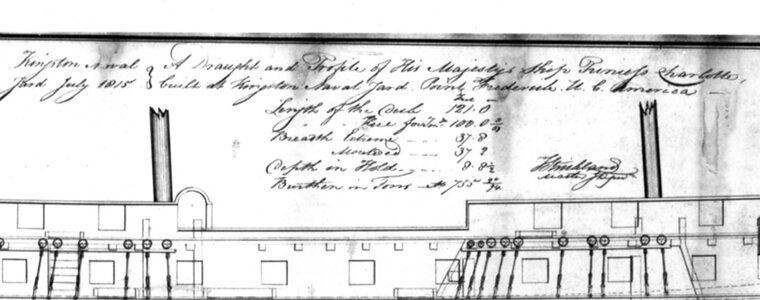 Kingston Naval
Yard July 1815
A Draught and Profile of His Majesty's Ship Princess Charlotte,
built at Kingston Naval Yard. Point Frederick. U. C. America
Feet
Length of the Deck 121.0
Keel for Tons 100.0
Breadth Extreme 37.8
Moulded 37.2
Depth in Hold 8.8½
Burthen in Tons No 755
Master Shipwt